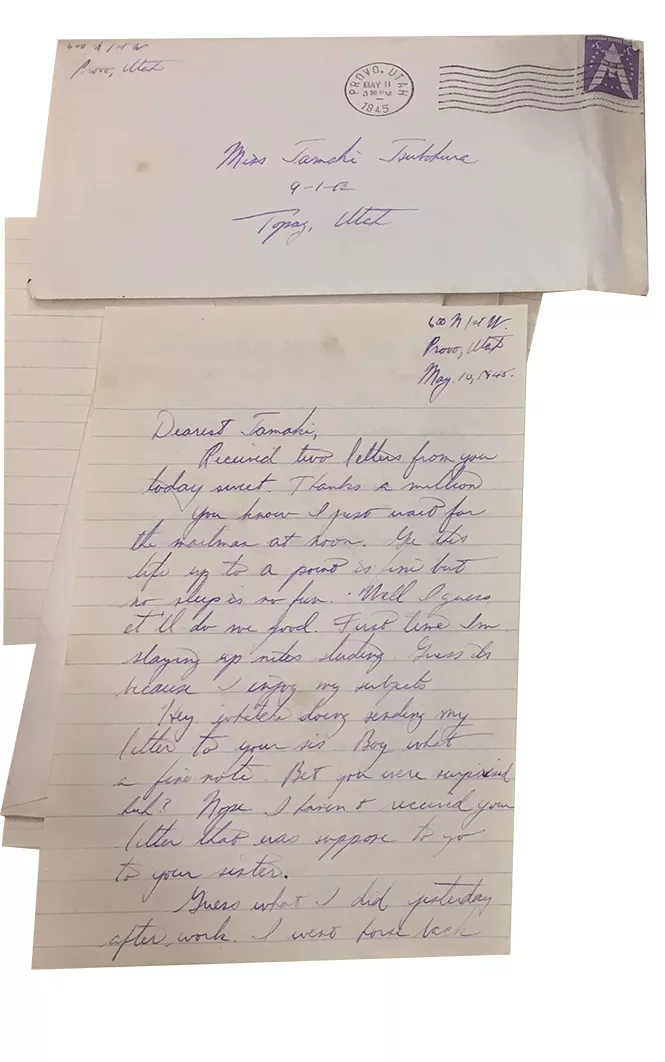 600 N 1st W
Provo, Utah
PROVO, UTAH
MAY 11
3 30 PM
1945
Miss Tamaki Tsubokura
9-1-
Topaz, Utah
600 N 1st W.
Provo, Utah
May. 10, 1945.
Dearest Tamaki,
Received two letters from you
today sweet. Thanks a million
You know I just wait for
the mailman at noon. Ge this
life up to a point is but
no sleep is no fun. Well I guess
it'll do me good. First time Im
staying up nites studing. Guess its
because I enjoy my subjects
Hey whatcha doing sending my
letter to your sis. Boy what
a fine note. Bet you were surprised
huh? Nope I haven't received your
letter that was suppose to go
to your sister.
Guess what I did yesterday
after work. I went horse back